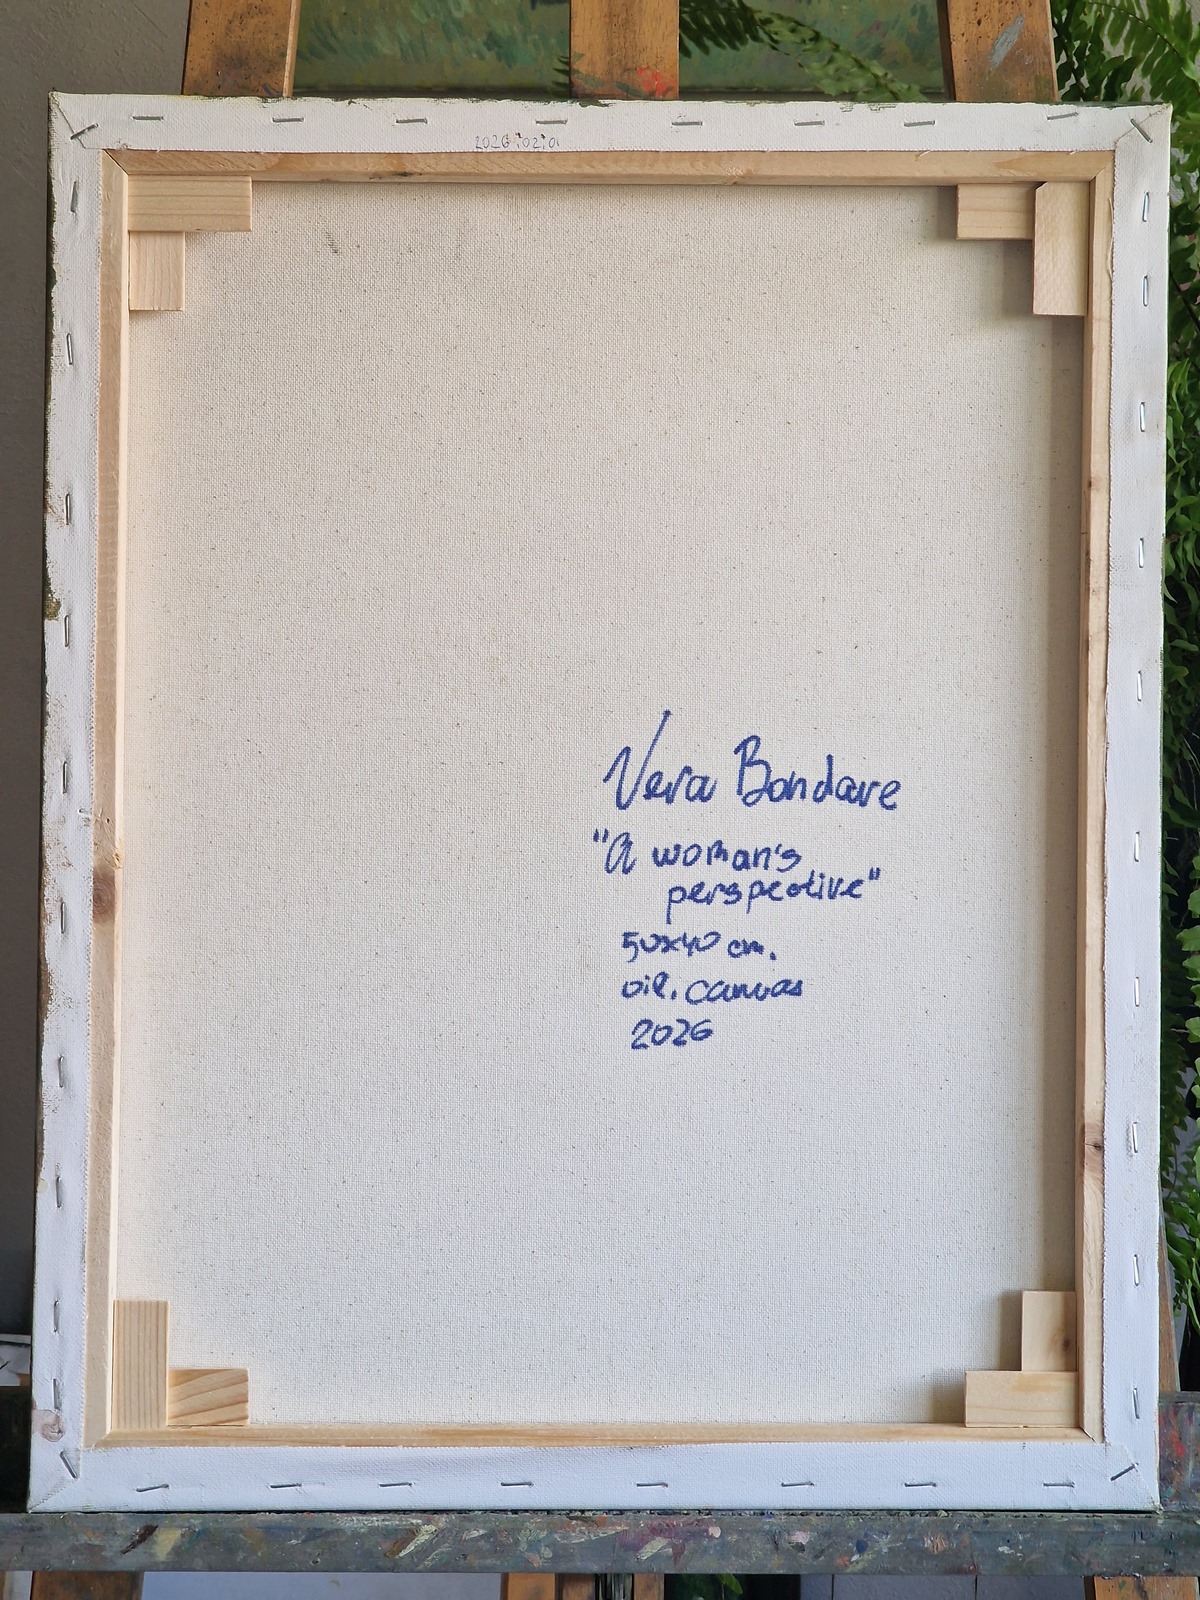 Vera Bondare
"A woman's
perspective"
50x40 cm.
oil, canvas
2026